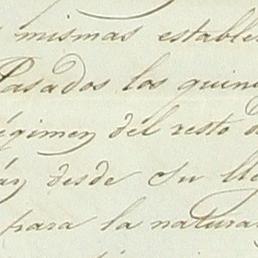 mismas estable
Pasados los quin
égimen del resto d
án desde su lle
para la natura